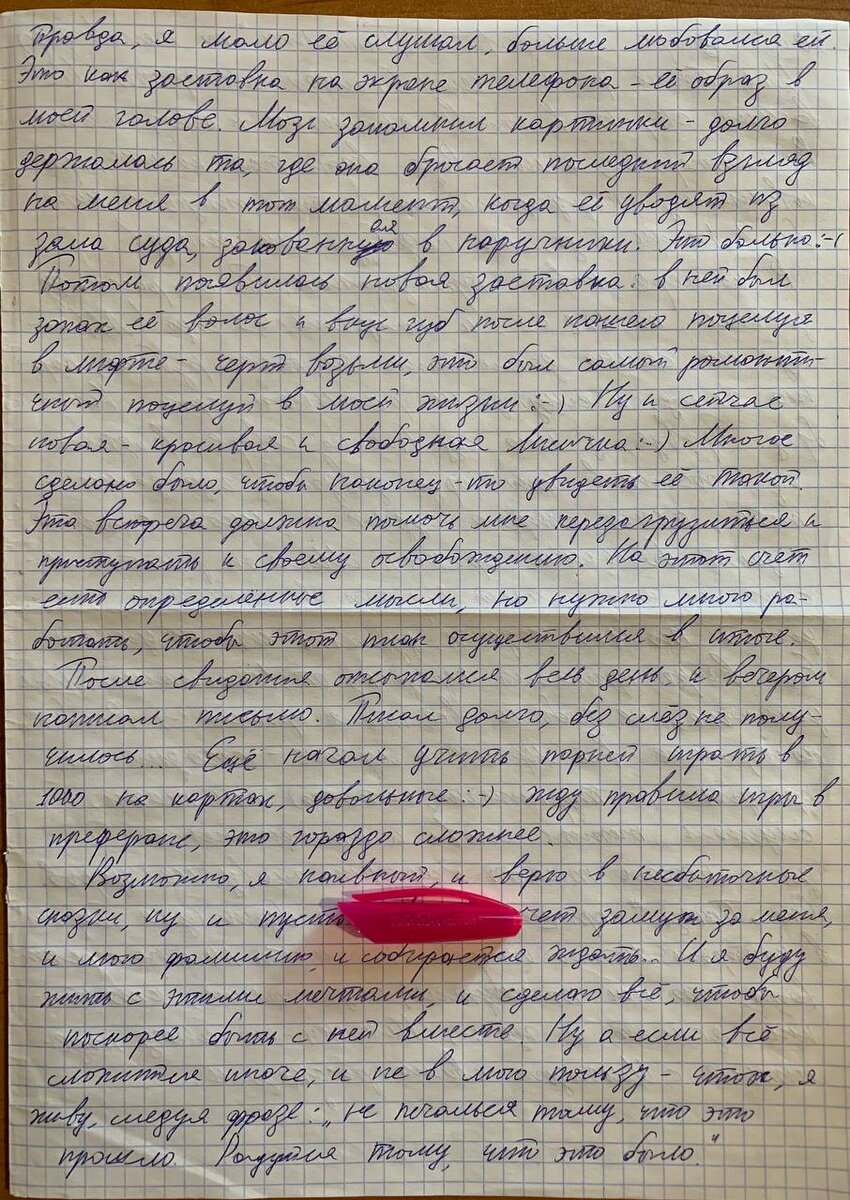 Правда, я мало её слушал, больше любовался ей.
Это как заставка на экране телефона - её образ в
моей голове. Мозг запомнил картинки - долго
держалась та, где она бросает последний взгляд
на меня в тот момент, когда её уводят из
зала суда, закованная в наручники. Это больно :-(
Потом появилась новая заставка: в ней был
запах её волос и вкус губ после нашего поцелуя
в лифте - черт возьми, это был самый романти-
чный поцелуй в моей жизни :-) Ну и сейчас
новая - красивая и свободная Лисичка :-) Многое
сделано было, чтобы наконец-то увидеть её такой.
Эта встреча должна помочь мне передозгрузиться и
приступать к своему освобождению. На этот счет
есть определённые мысли, но нужно много ра-
ботать, чтобы этот план осуществился в итоге.
После свидания отсыпался весь день, и вечером
написал письмо. Писал долго, без слёз не полу-
чилось... Ещё начал учить парней играть в
1000 на картах, довольные :-) Жду правила игры в
преферанс, это гораздо сложнее.
Возможно, я наивный, и верю в несбыточные
сказки, ну и замуж за меня,
и мою фамилию, и собирается ждать... И я буду
жить с этими мечтами, и сделаю всё, чтобы
поскорее быть с ней вместе. Ну а если всё
сложится иначе, и не в мою пользу - чтож, я
живу, следуя фразе: „не печалься тому, что это
прошло. Радуйся тому, что это было."